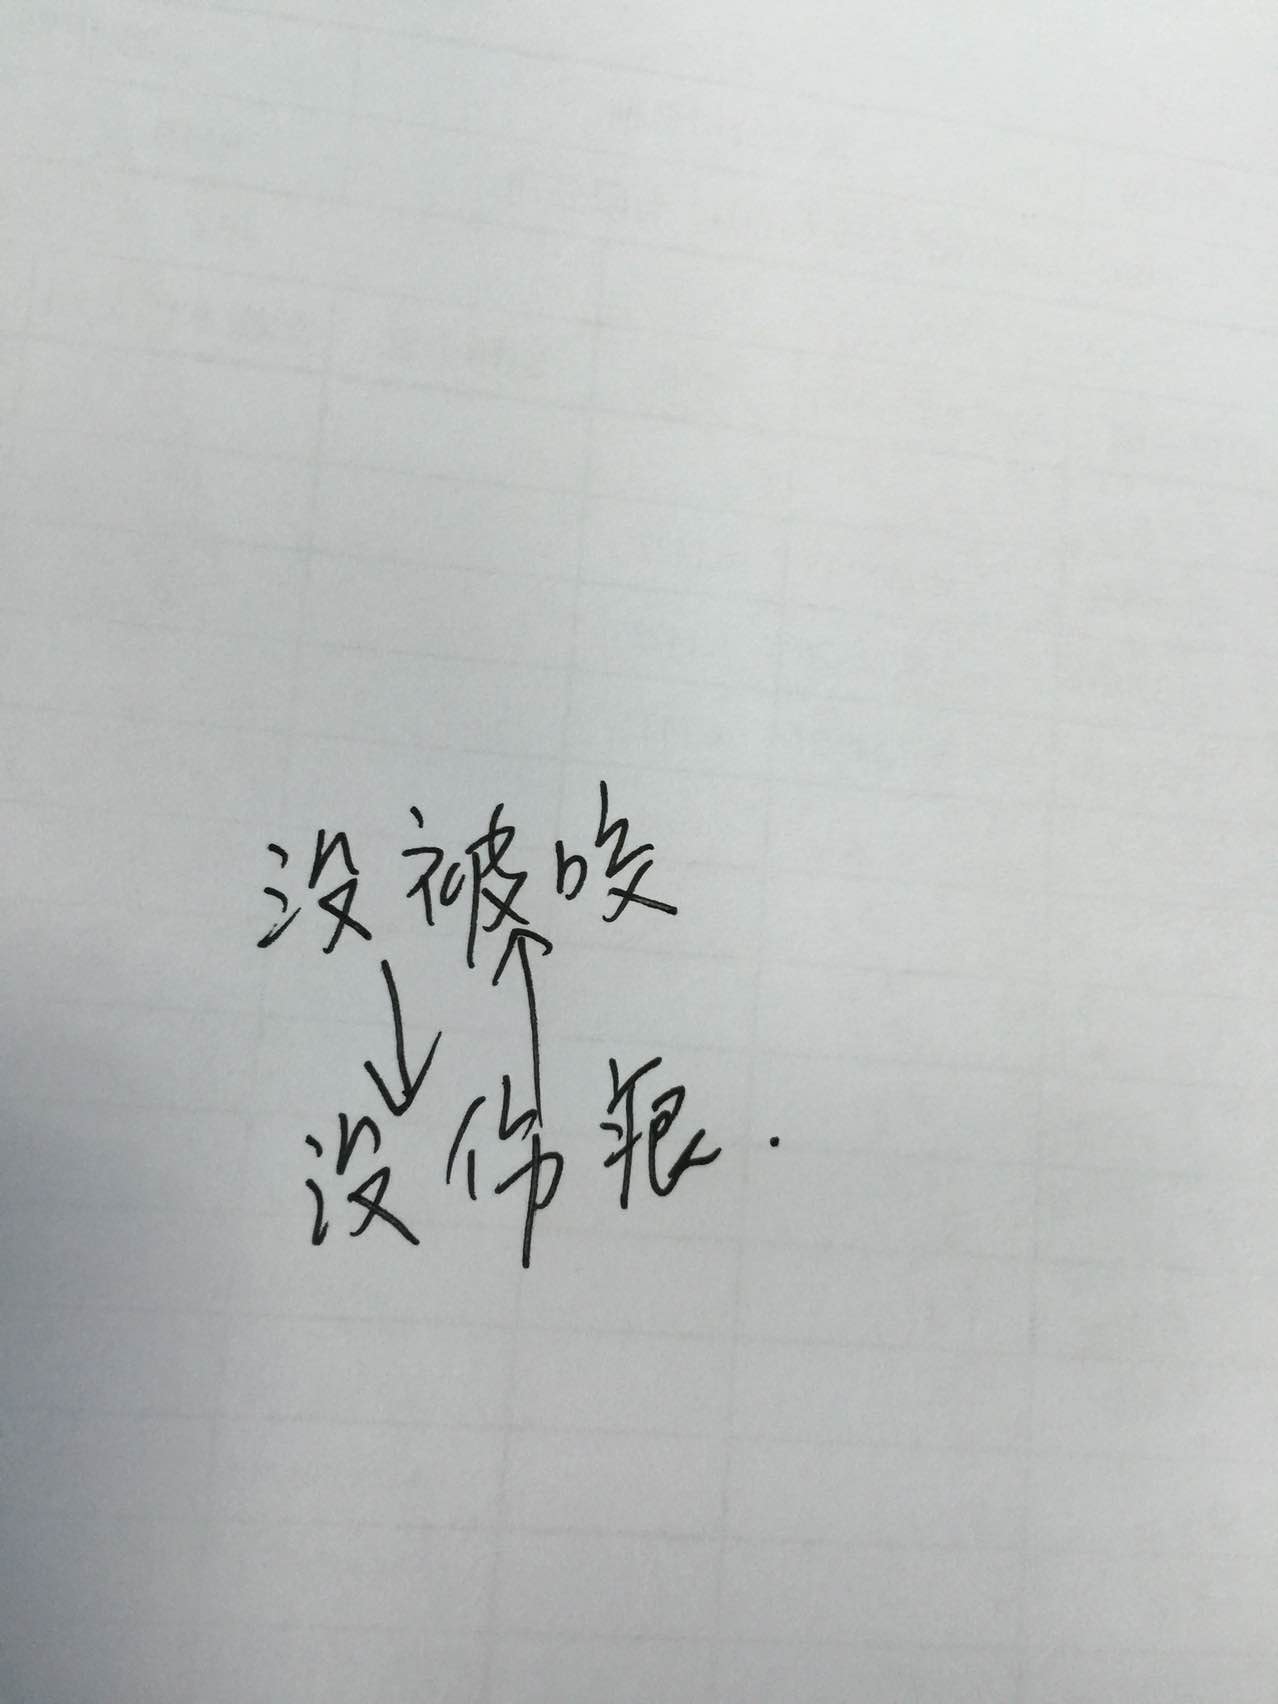 没被咬
↓ ↑
没伤痕.